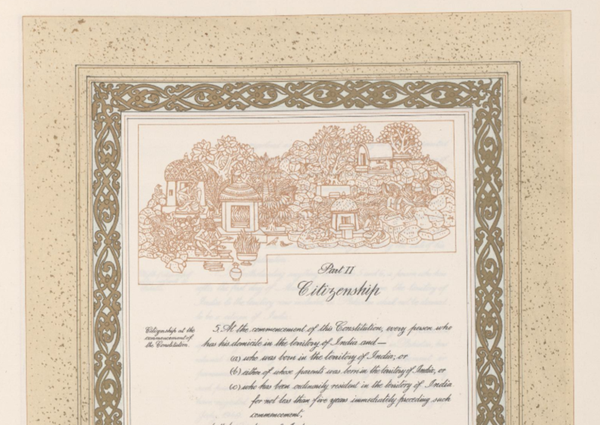 Part II
Citizenship
Citizenship at the
commencement of
the Constitution.
5. At the commencement of this Constitution, every person who
has his domicile in the territory of India and—
(a) who was born in the territory of India; or
(b) either of whose parents was born in the territory of India; or
(c) who has been ordinarily resident in the territory of India
for not less than five years immediately preceding such
commencement,